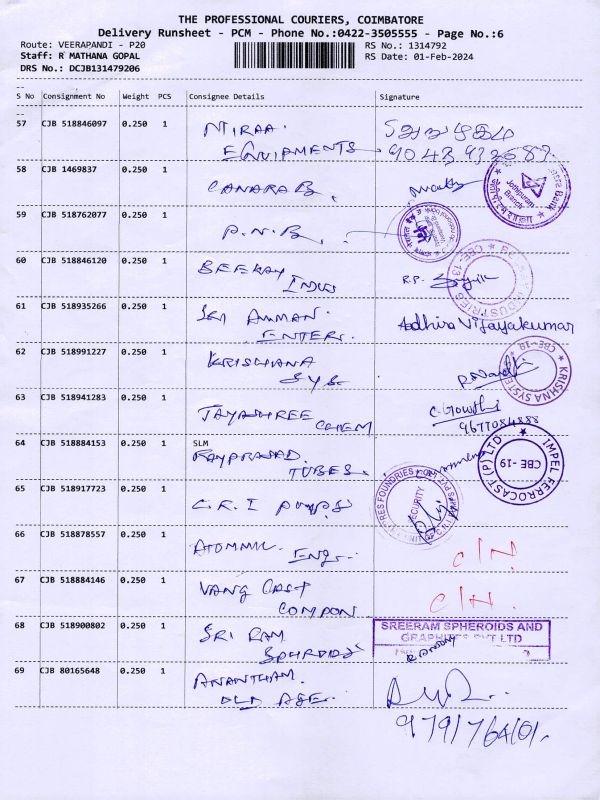 THE PROFESSIONAL COURIERS, COIMBATORE
Delivery Runsheet - PCM - Phone No.:0422-3505555 - Page No.:6
Route: VEERAPANDI - P20
RS No.: 1314792
Staff: R MATHANA GOPAL
RS Date: 01-Feb-2024
DRS No.: DCJB131479206
S No Consignment No Weight PCS Consignee Details Signature
57 CJB 518846097 0.250 1 NIRAA
EQUIPMENTS
58 CJB 1469837 0.250 1 CANARA B.
Jothipuram
Branch
59 CJB 518762077 0.250 1 P.N.B.
60 CJB 518846120 0.250 1 BEEKAY
INDUS R.P.
INDUSTRIES CBE-19
61 CJB 518935266 0.250 1 SRI AMMAN
ENTER. Aadhira Vijayakumar
62 CJB 518991227 0.250 1 KRISHANA
SYS.
KRISHNA SYSTEM CBE-19
63 CJB 518941283 0.250 1 JAYASHREE
CHEM C. Gowthi
9677084888
64 CJB 518884153 0.250 1 SLM
RAYPRASAD
TUBES.
IMPEL FERROCAST (P) LTD
CBE-19
65 CJB 518917723 0.250 1 C.R.I PUMPS
FOUNDRIES
SECURITY
66 CJB 518878557 0.250 1 ATOMMIC
ENG. C/N.
67 CJB 518884146 0.250 1 VANG CAST
COMPON C/N.
68 CJB 518900802 0.250 1 SRI RAM
SPHROIDS
SREERAM SPHEROIDS AND
GRAPHITES PVT LTD
69 CJB 80165648 0.250 1 ANANTHAM
OLD AGE.
9791764101.